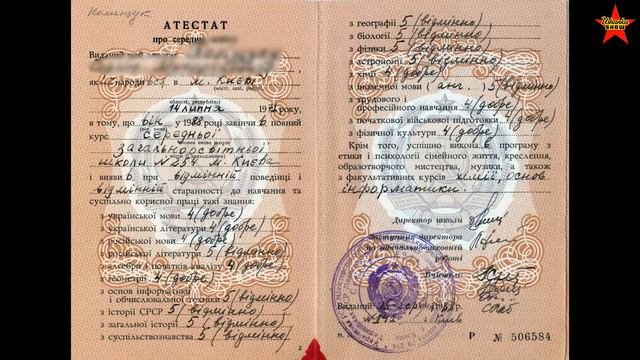 Поліщук
АТЕСТАТ
про середню
Виданий
в м. Києві
(місті, селі, районі)
області, республіки)
14 липня 1971 року,
в тому, що він у 1988 році закінчив повний
курс середньої
загальноосвітньої
школи №234 м. Києва
і виявив при відмінній поведінці і
відмінній старанності до навчання та
суспільно корисної праці такі знання:
з української мови 4 (добре)
з української літератури 4 (добре)
з російської мови 4 (добре)
з російської літератури 5 (відмінно)
з алгебри і початків аналізу 4 (добре)
з геометрії 4 (добре)
з основ інформатики
і обчислювальної техніки 5 (відмінно)
з історії СРСР 5 (відмінно)
з загальної історії 5 (відмінно)
з суспільствознавства 5 (відмінно)
2
з географії 5 (відмінно)
з біології 5 (відмінно)
з фізики 5 (відмінно)
з астрономії 5 (відмінно)
з хімії 4 (добре)
з іноземної мови (анг.) 5 (відмінно)
з трудового і
професійного навчання 4 (добре)
з початкової військової підготовки 4 (добре)
з фізичної культури 4 (добре)
Крім того, успішно виконав програму з
етики і психології сімейного життя, креслення,
образотворчого мистецтва, музики, а також
з факультативних курсів хімії, основ
інформатики.
Директор школи
Заступник директора
по навчально-виховній
роботі
Вчителі:
Виданий
М. П.
Р № 506584
Ushanka
SHOW